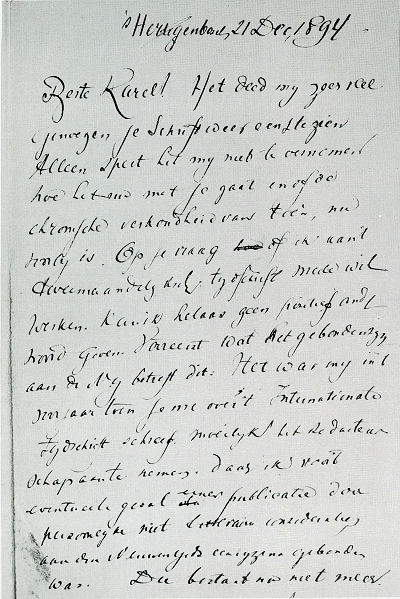 's Hertogenbosch, 21 Dec, 1894
Beste Karel! Het deed my zeer veel
genoegen je Schrift weer eens te zien
Alleen spyt het my niet te vernemen
hoe het nu met je gaat en of de
chronische verkoudheid van toen, nu
voorby is. Op je vraag of ik aan 't
tweemaandelyksch tydschrift mede wil
werken kan ik helaas geen positief ant
woord geven. Vooreerst wat het gebonden zyn
aan de N.G. betreft dit: Het was my in 't
voorjaar toen je me over 't Internationale
Tydschrift schreef moeielyk het redacteur
schap aan te nemen, daar ik voor 't
eventueele geval eener publicatie door
persoonlyke niet litteraire consideraties
aan den Nieuwe Gids eenigszins gebonden
was. Die bestaat nu niet meer.